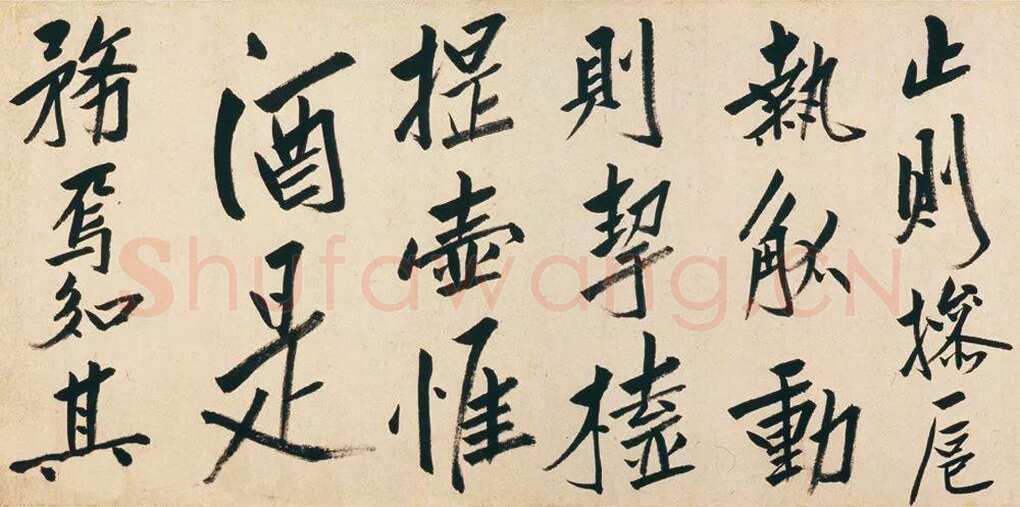 止則操巵
執觚動
則挈榼
提壺惟
酒是
務焉知其
Shufawang.CN